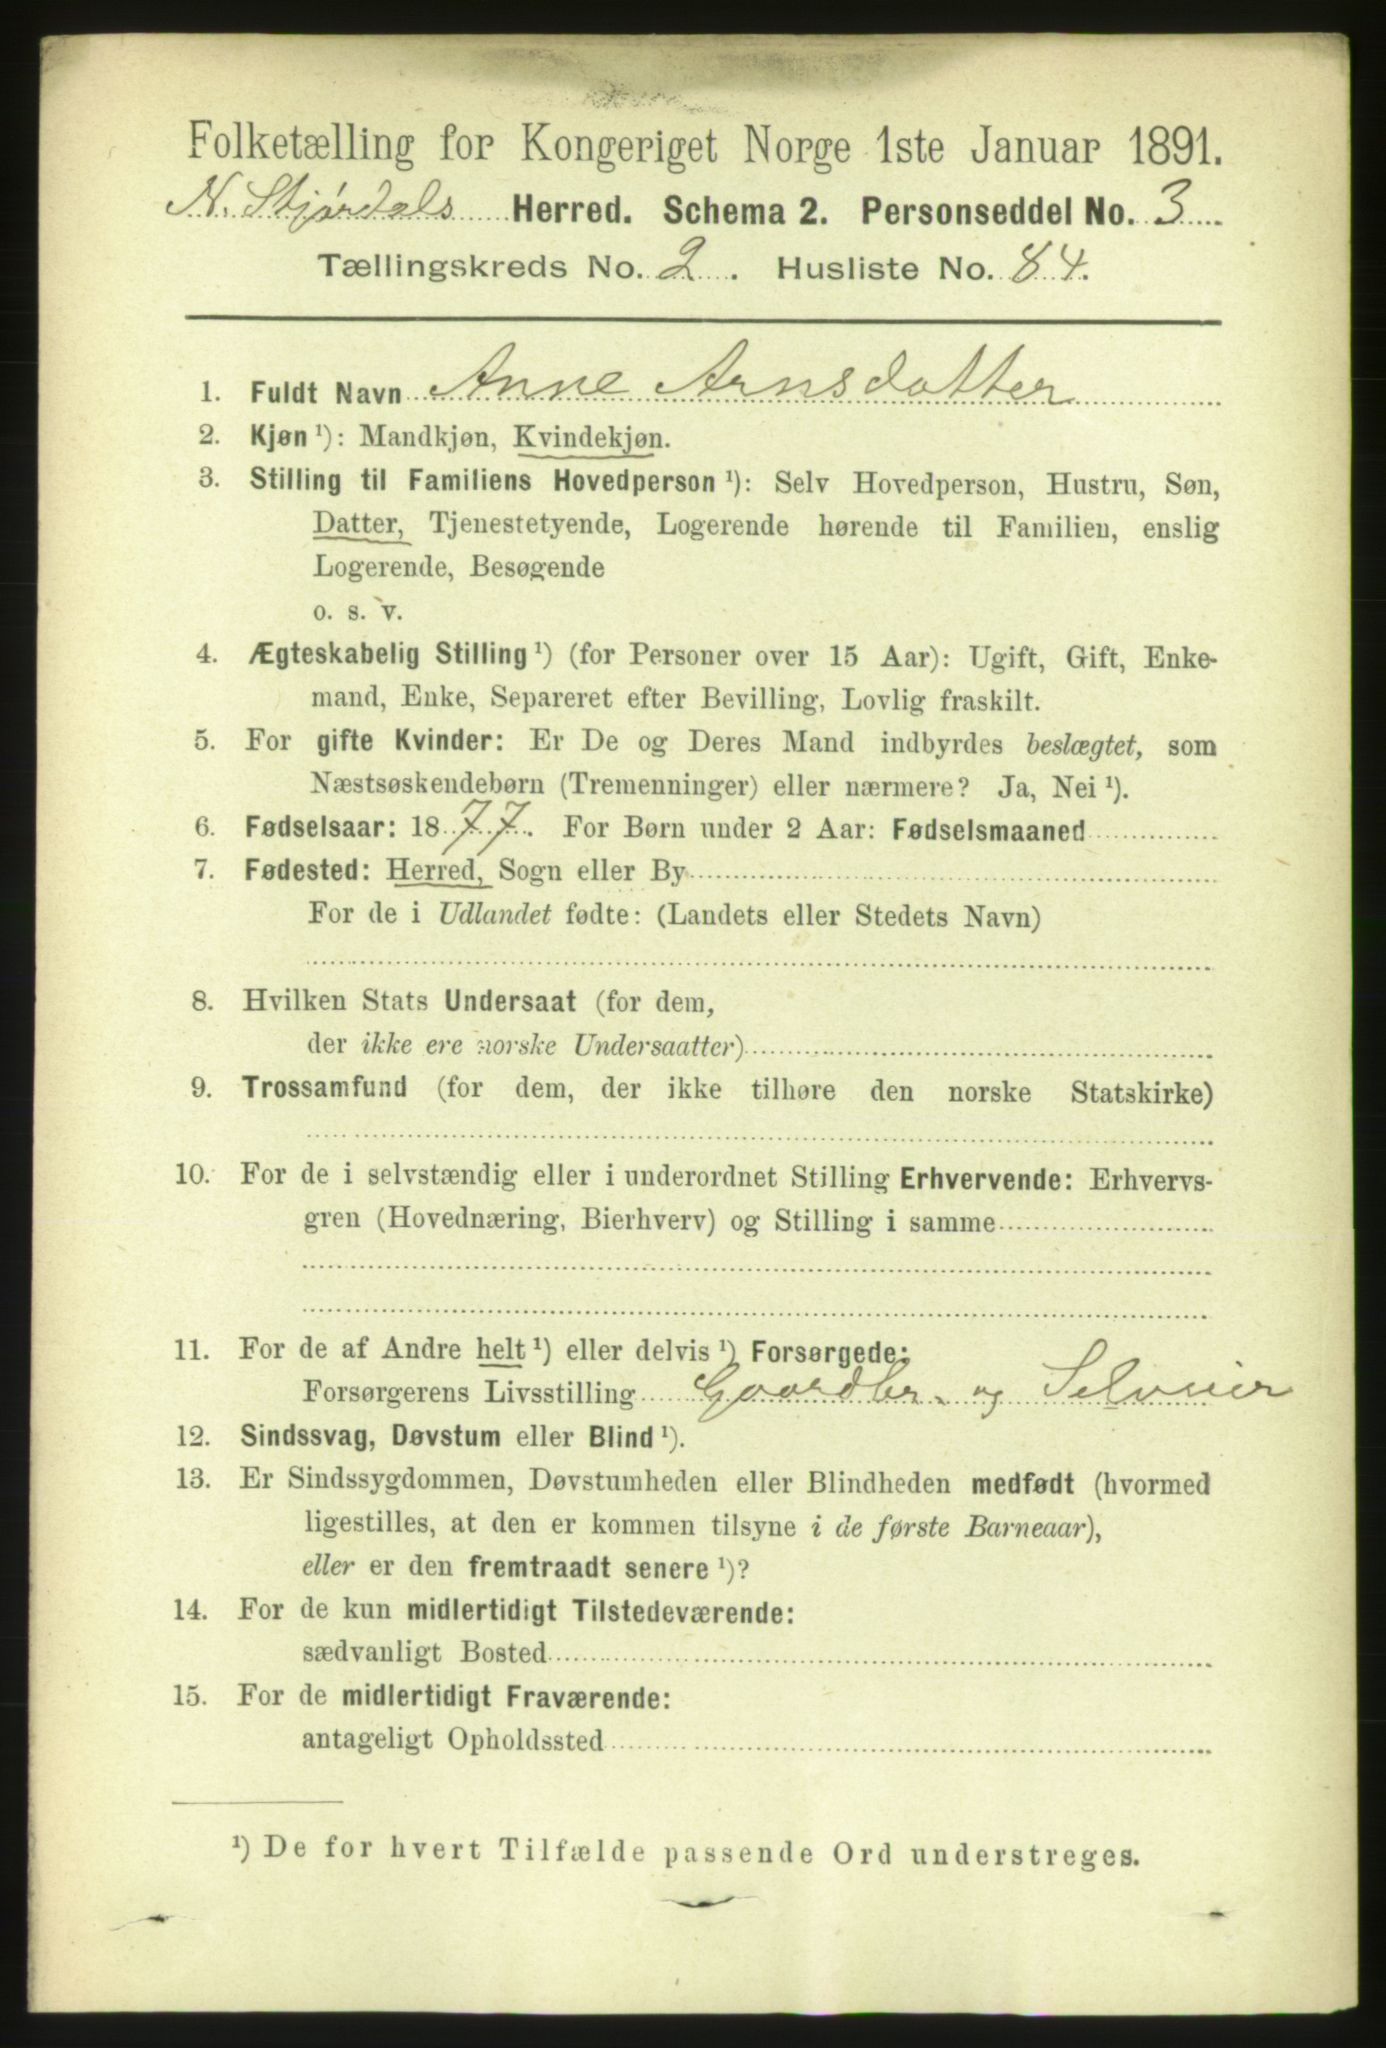 Folketælling for Kongeriget Norge 1ste Januar 1891.
N. Stjørdals Herred. Schema 2. Personseddel No. 3
Tællingskreds No. 2. Husliste No. 84.
1. Fuldt Navn Anne Arnsdatter
2. Kjøn ¹): Mandkjøn, Kvindekjøn.
3. Stilling til Familiens Hovedperson ¹): Selv Hovedperson, Hustru, Søn,
Datter, Tjenestetyende, Logerende hørende til Familien, enslig
Logerende, Besøgende
o. s. v.
4. Ægteskabelig Stilling ¹) (for Personer over 15 Aar): Ugift, Gift, Enke-
mand, Enke, Separeret efter Bevilling, Lovlig fraskilt.
5. For gifte Kvinder: Er De og Deres Mand indbyrdes beslægtet, som
Næstsøskendebørn (Tremenninger) eller nærmere? Ja, Nei ¹).
6. Fødselsaar: 1877. For Børn under 2 Aar: Fødselsmaaned
7. Fødested: Herred, Sogn eller By
For de i Udlandet fødte: (Landets eller Stedets Navn)
8. Hvilken Stats Undersaat (for dem,
der ikke ere norske Undersaatter)
9. Trossamfund (for dem, der ikke tilhøre den norske Statskirke)
10. For de i selvstændig eller i underordnet Stilling Erhvervende: Erhvervs-
gren (Hovednæring, Bierhverv) og Stilling i samme
11. For de af Andre helt ¹) eller delvis ¹) Forsørgede:
Forsørgerens Livsstilling Gaardbr. og Selveier
12. Sindssvag, Døvstum eller Blind ¹).
13. Er Sindssygdommen, Døvstumheden eller Blindheden medfødt (hvormed
ligestilles, at den er kommen tilsyne i de første Barneaar),
eller er den fremtraadt senere ¹)?
14. For de kun midlertidigt Tilstedeværende:
sædvanligt Bosted
15. For de midlertidigt Fraværende:
antageligt Opholdssted
¹) De for hvert Tilfælde passende Ord understreges.